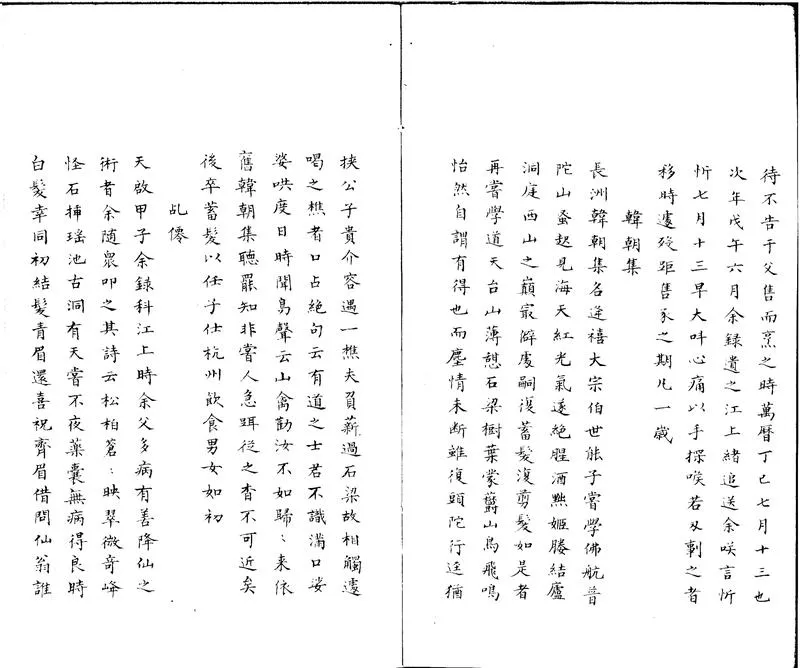 待不告于父售而烹之時萬曆丁巳七月十三也
次年戊午六月余録遺之江上緒追送余咲言忻
忻七月十三早大呌心痛以手探喉若刄刺之者
移時遽殁距售豕之期凡一歲
韓朝集
長洲韓朝集名逢禧大宗伯世能子嘗學佛航普
陀山蚤起見海天紅光氣遂絶腥酒㸃姬媵結廬
洞庭西山之巔㝡僻處嗣復蓄髮復剪髮如是者
再嘗學道天台山薄憇石梁樹葉蒙欝山鳥飛鳴
怡然自謂有得也而塵情未斷雖復頭陀行逕猶
挾公子貴介容遇一樵夫負薪過石梁故相觸遽
喝之樵者口占絶句云有道之士君不識滿口娑
婆哄度日時聞鳥聲云山禽勸汝不如歸〻來依
舊韓朝集聽罷知非嘗人急跽從之杳不可近矣
後卒蓄髮以任子仕杭州飲食男女如初
乩僊
天啟甲子余録科江上時余父多病有善降仙之
術者余随衆叩之其詩云松柏蒼〻映翠微奇峰
怪石揷瑶池古洞有天嘗不夜藥囊無病得良時
白髮幸同初結髮青眉還喜祝齊眉借問仙翁誰